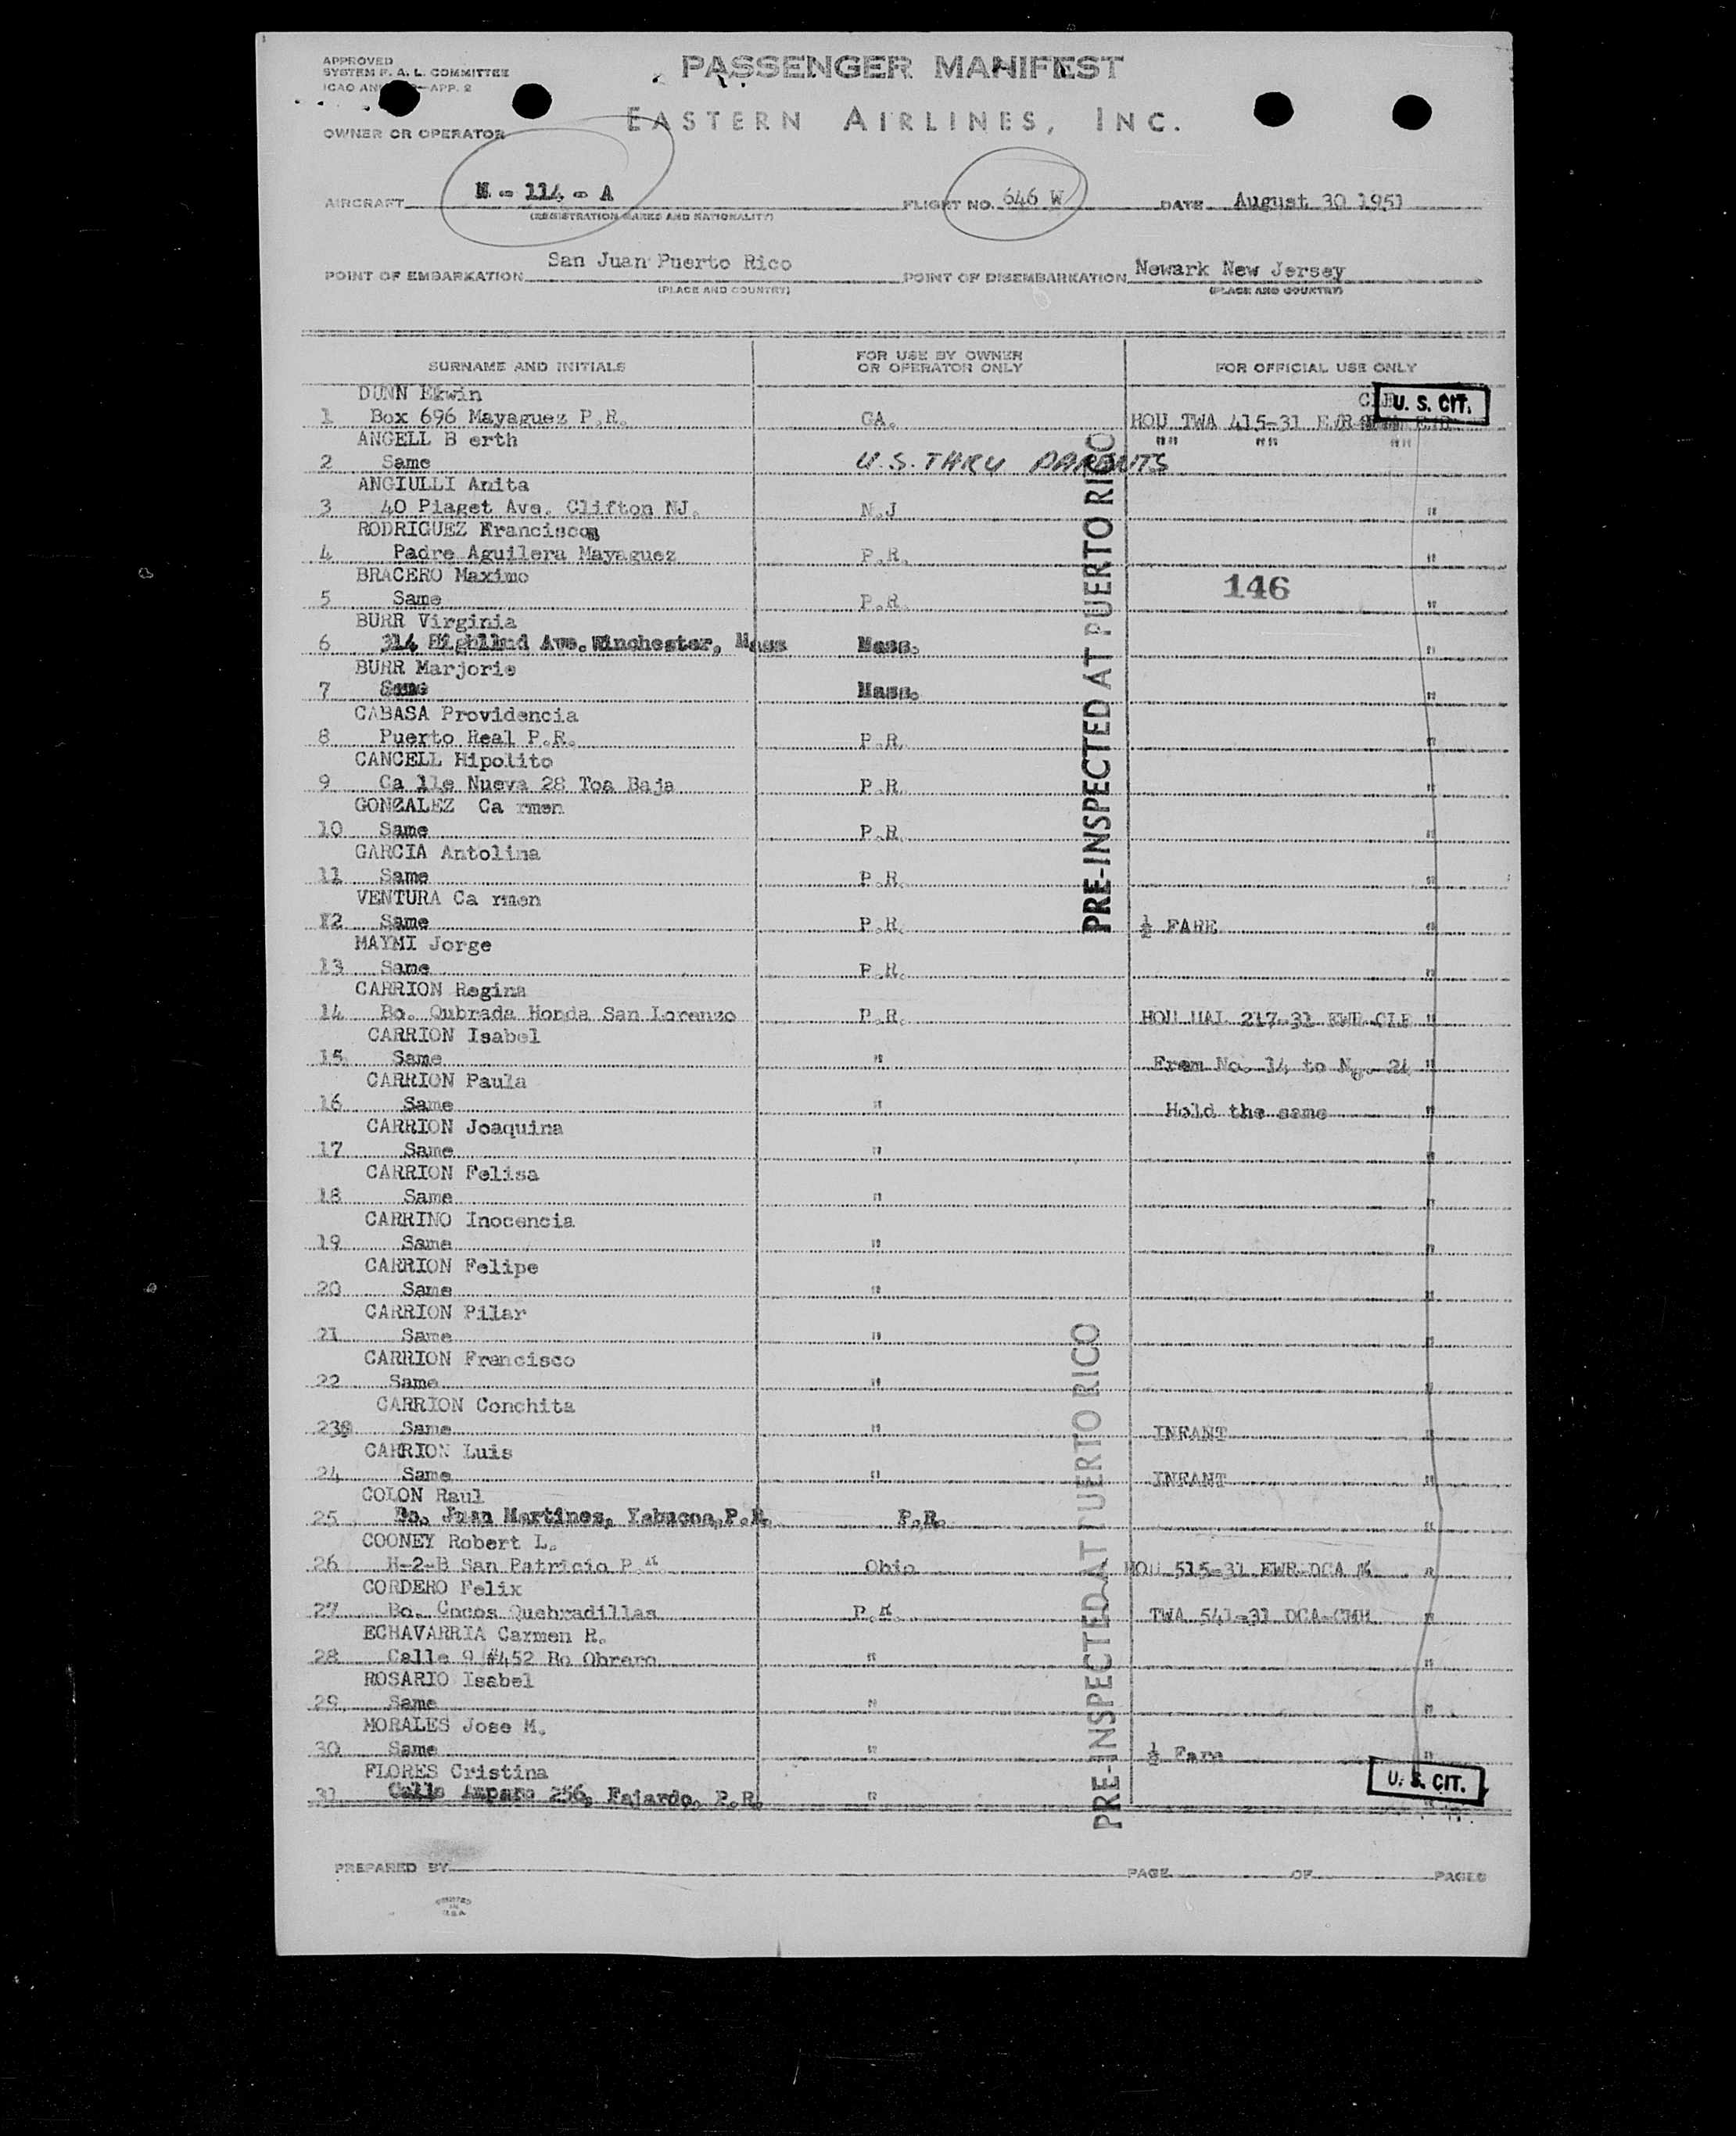 APPROVED
SYSTEM F. A. L. COMMITTEE
ICAO APP. 2
PASSENGER MANIFEST
EASTERN AIRLINES, INC.
OWNER OR OPERATOR
AIRCRAFT N - 114 - A FLIGHT NO. 646 W DATE August 30 1951
(REGISTRATION MARKS AND NATIONALITY)
POINT OF EMBARKATION San Juan Puerto Rico POINT OF DISEMBARKATION Newark New Jersey
(PLACE AND COUNTRY) (PLACE AND COUNTRY)
SURNAME AND INITIALS FOR USE BY OWNER OR OPERATOR ONLY FOR OFFICIAL USE ONLY
DUNN Edwin U. S. CIT.
1 Box 696 Mayaguez P.R. GA. HOU TWA 415-31
ANGELL B erth "" "" ""
2 Same U.S. THRU PARENTS
ANGIULLI Anita
3 40 Piaget Ave. Clifton NJ. N.J "
RODRIGUEZ Francisco
4 Padre Aguilera Mayaguez P.R. "
BRACERO Maximo 146
5 Same P.R. "
BURR Virginia
6 314 Ave. Winchester, Mass Mass. "
BURR Marjorie
7 Same Mass. "
CABASA Providencia
8 Puerto Real P.R. P.R. "
CANCELL Hipolito
9 Ca lle Nueva 28 Toa Baja P.R. "
GONZALEZ Ca rmen
10 Same P.R. "
GARCIA Antolina
11 Same P.R. "
VENTURA Ca rmen
12 Same P.R. ½ FARE "
MAYMI Jorge
13 Same P.R. "
CARRION Regina
14 Bo. Qubrada Honda San Lorenzo P.R. HOU UAL 217-31 EWR CLE "
CARRION Isabel
15 Same " From No. 14 to No. 24 "
CARRION Paula
16 Same " Hold the same "
CARRION Joaquina
17 Same " "
CARRION Felisa
18 Same " "
CARRINO Inocencia
19 Same " "
CARRION Felipe
20 Same " "
CARRION Pilar
21 Same " "
CARRION Francisco
22 Same " "
CARRION Conchita
23 Same " INFANT "
CARRION Luis
24 Same " INFANT "
COLON Raul
25 Bo. Juan Martines, Yabucoa, P.R. P.R. "
COONEY Robert L.
26 H-2-B San Patricio P.R. Ohio HOU 515-31 EWR-DCA "
CORDERO Felix
27 Bo. Cocos Quebradillas P.R. TWA 541-31 DCA-CMH "
ECHAVARRIA Carmen R.
28 Calle 9 #452 Bo Obrero " "
ROSARIO Isabel
29 Same " "
MORALES Jose M.
30 Same " ½ Fare "
FLORES Cristina U. S. CIT.
31 Calle Amparo 256, Fajardo, P.R. " "
PRE-INSPECTED AT PUERTO RICO
PRE-INSPECTED AT PUERTO RICO
PREPARED BY PAGE OF PAGES
PRINTED
IN
U.S.A.